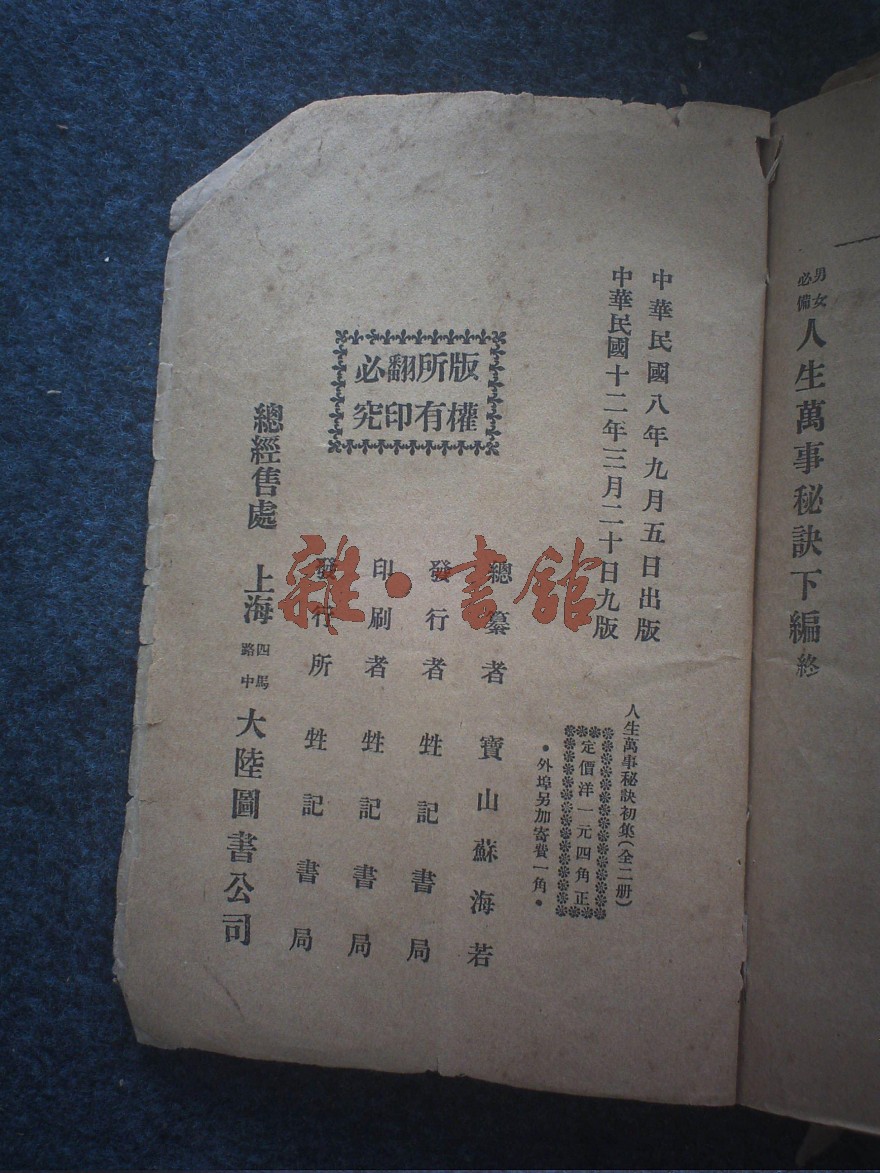 男女必備
人生萬事秘訣下編終
中華民國八年九月五日出版
中華民國十二年三月二十日九版
人生萬事秘訣初集(全二册)
定價洋一元四角正
•外埠另加寄費一角•
版權
所有
翻印
必究
總纂者寶山蘇海若
發行者甡記書局
印刷者甡記書局
發行所甡記書局
總經售處 上海四馬路中大陸圖書公司
雜·書館